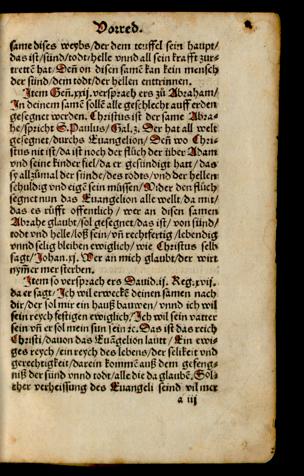 Vorred.
same dises weybs/der dem teuffel sein haupt/
das ist/sünd/todt/helle vnnd all sein krafft zur-
trettē hat/Deñ on disen samē kan kein mensch
der sünd/dem todt/der hellen entrinnen.
Item Geñ.xxij. versprach ers zů Abraham/
In deinem samē sollē alle geschlecht auff erden
gesegnet werden. Christus ist der same Abra-
he/spricht S. Paulus/Gal.3. Der hat all welt
gesegnet/durchs Euangelion/Deñ wo Chri-
stus nit ist/da ist noch der flůch/der über Adam
vnd seine kinder fiel/da er gesündigt hatt/das
sy allzůmal der sünde/des todts/vnd der hellen
schuldig vnd eigē sein müssen/Wider den flůch
segnet nun das Euangelion alle welt/da mit/
das es rüfft offentlich/wer an disen samen
Abrahe glaubt/sol gesegnet/das ist/von sünd/
todt vnd helle/loß sein/vñ rechtfertig/lebendig
vnnd selig bleiben ewiglich/wie Christus selb
sagt/Johan.ij. Wer an mich glaubt/der wirt
nym̃er mer sterben.
Item so versprach ers Dauid.ij. Reg.xvij.
da er sagt/Ich wil erweckē deinen samen nach
dir/der sol mir ein hauß bauwen/vnnd ich wil
sein reych festigen ewiglich/Ich wil sein vatter
sein vñ er sol mein sun sein ꝛc. Das ist das reich
Christi/dauon das Euāgelion lautt/Ein ewi-
ges reych/ein reych des lebens/der selikeit vnd
gerechtigkeit/darein kommē auß dem gefeng-
niß der sünd vnnd todt/alle die da glaubē. Sol-
cher verheissung des Euangeli seind vil mer
a iij